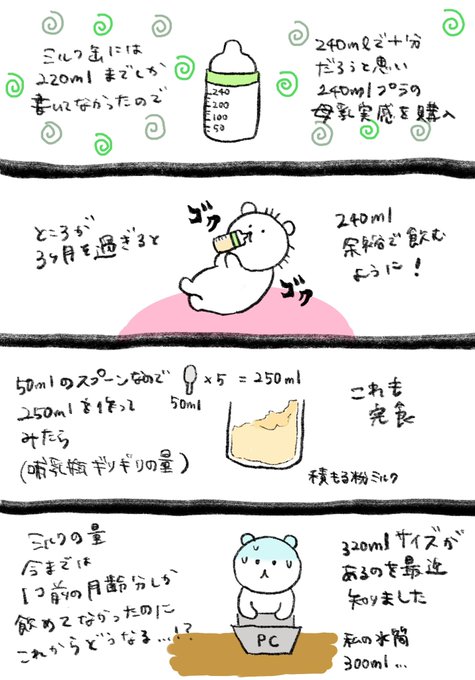 240mlで十分
だろうと思い
240mlプラの
母乳実感を購入
240
200
100
50
ミルク缶には
220mlまでしか
書いてなかったので
240ml
余裕で飲む
ように!
ゴク
ゴク
ところが
3ヶ月を過ぎると
50mlのスプーンなので
250mlを作って
みたら
(哺乳瓶ギリギリの量)
×5=250ml
50ml
積もる粉ミルク
これも
完食
ミルクの量
今までは
1つ前の月齢分しか
飲めてなかったのに
これからどうなる…!?
PC
320mlサイズが
あるのを最近
知りました
私の水筒
300ml…